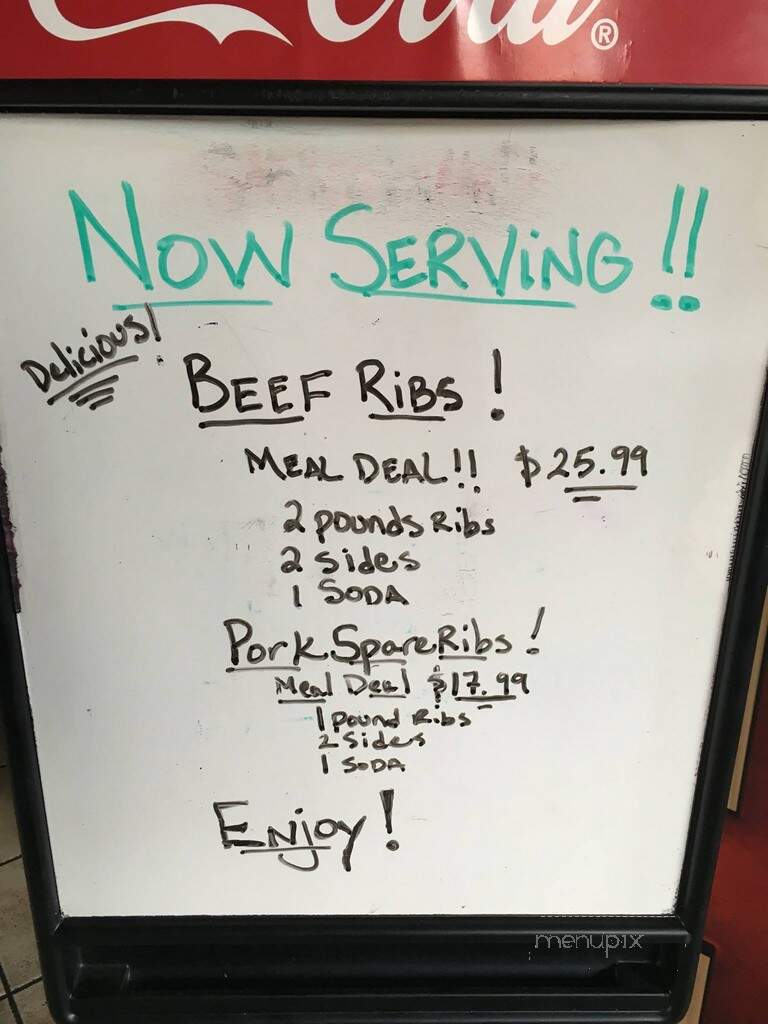 Cola®
NOW SERVING!!
Delicious!
BEEF RIBS!
MEAL DEAL!! $25.99
2 pounds Ribs
2 sides
1 SODA
Pork Spare Ribs!
Meal Deal $17.99
1 pound Ribs
2 Sides
1 SODA
ENJOY!
menupix